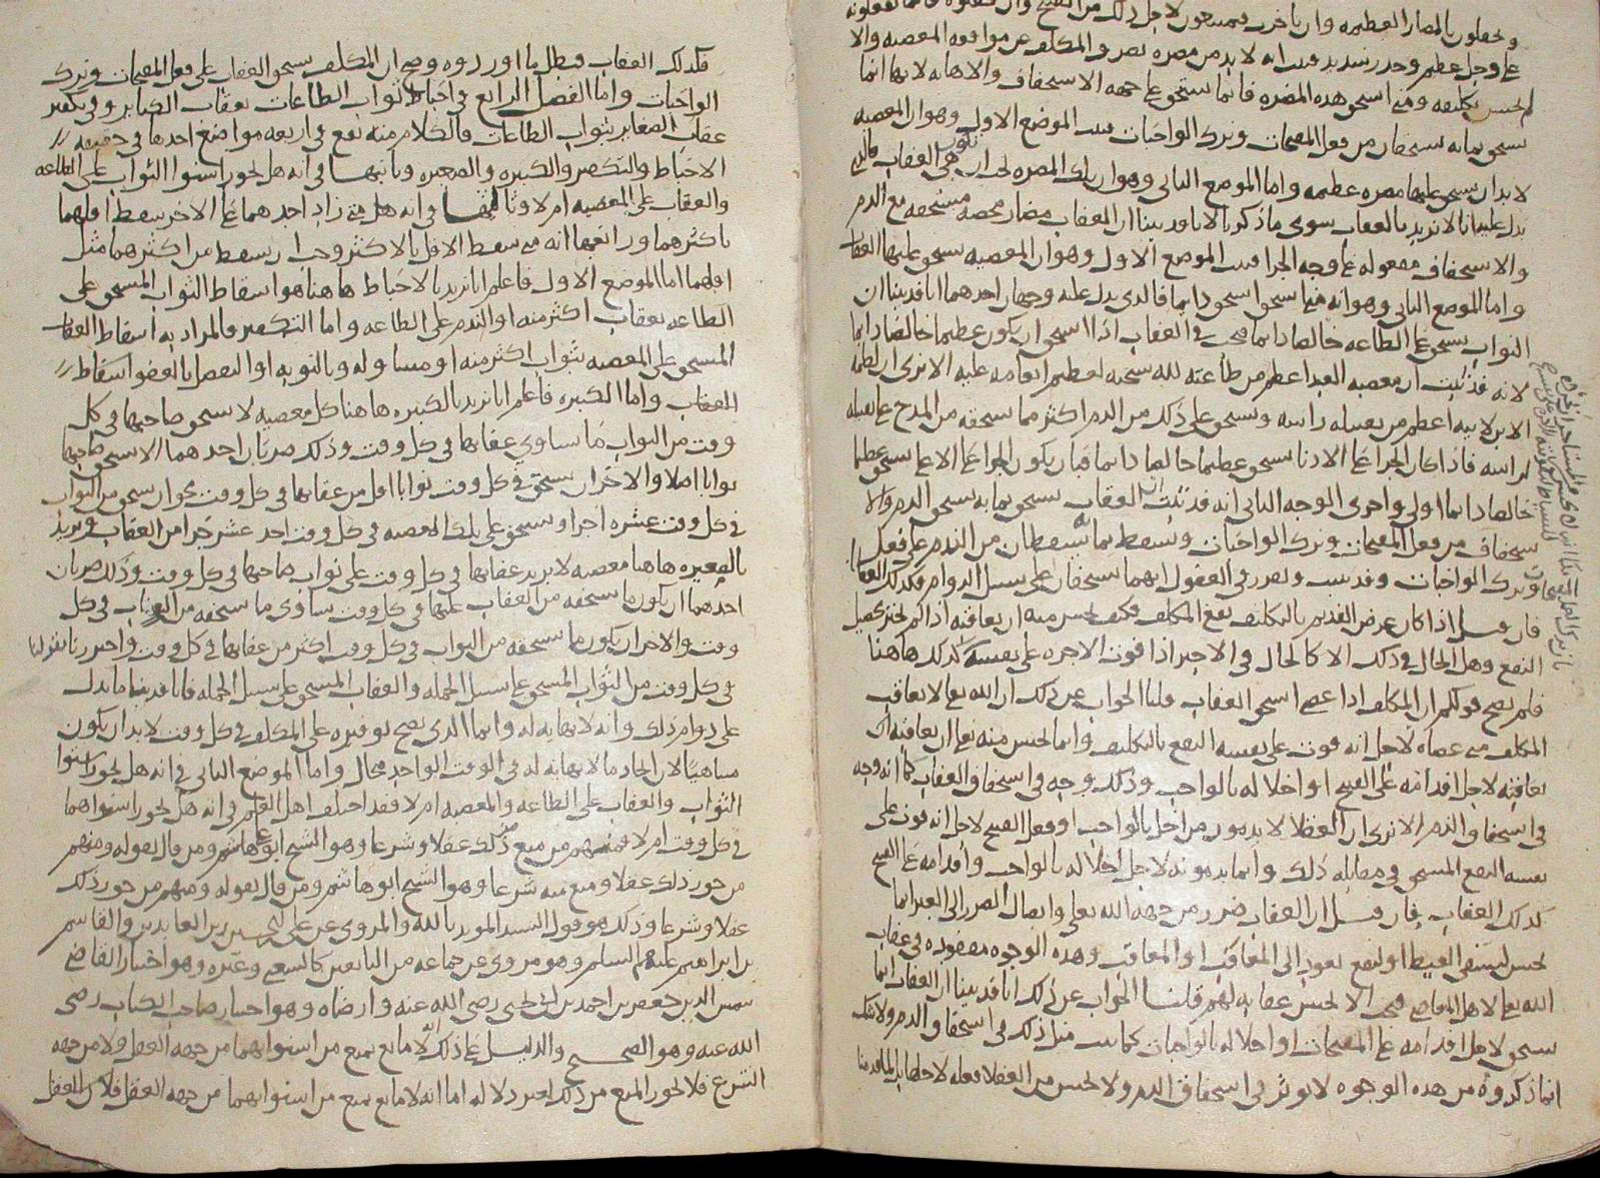 ويحملون بالمضار العظيمه وان يأخر فيمتنعون لاجل ذلك من القبيح وان
على وجل عظيم وحذر شديد فثبت انه لا بد من مضره تصرف المكلف عن مواقعه المعصيه والا
لم يحسن تكليفه ومتى استحق هذه المضره فانما تستحق على جهة الاستحفاف والاهانه لانها انما
تستحق بما به يستحقان من فعل المقبحات وترك الواجبات فثبت الموضع الاول وهو ان المعصيه
لا بد ان يستحق عليها مضره عظيمه واما الموضع الثاني وهو ان تلك المضره يجب ان تكون هي العقاب فالذي
يدل عليه انا لا نريد بالعقاب سوى ما ذكرنا لانا قد بينا ان العقاب مضار محضه مستحقه مع الذم
والاستحفاف مفعوله على وجه الجزا فثبت الموضع الاول وهو ان المعصيه يستحق عليها العقاب
واما الموضع الثاني وهو انه متى استحق استحق دايما فالذي يدل عليه وجهان احدهما انا قد بينا ان
الثواب يستحق على الطاعه خالصا دايما فيجب في العقاب اذا استحق ان يكون عظيما خالصا دايما
لانه قد ثبت ان معصيه العبد اعظم من طاعته لله سبحنه لعظيم انعامه عليه الا ترى ان لطمة
الابن لابيه اعظم من تقبيله راسه ويستحق على ذلك من الذم اكثر مما يستحقه من المدح على تقبيله
لراسه فاذا كان الجزا على الادنا يستحق عظيما خالصا دايما فبان يكون الجزا على الاعلا يستحق عظيما
خالصا دايما اولى واحرى الوجه الثاني انه قد ثبت ان العقاب يستحق بما به يستحق الذم والا
ستحفاف من فعل المقبحات وترك الواجبات ويسقط بما به يسقطان من الندم على فعل
وترك الواجبات وقد ثبت وتقرر في العقول انهما يستحقان على سبيل الدوام فكذلك العقاب
فان قيل اذا كان غرض القديم بالتكليف نفع المكلف فكيف يحسن منه ان يعاقبه اذا لم يختر تحصيل
النفع وهل الحال في ذلك الا كالحال في الاجير اذا فوت الاجره على نفسه كذلك هاهنا
فلم يصح قولكم ان المكلف اذا عصى استحق العقاب قلنا الجواب عن ذلك ان الله تعالى لا يعاقب
المكلف متى عصاه لاجل انه فوت على نفسه النفع بالتكليف وانما يحسن منه تعالى ان يعاقبه
يعاقبه لاجل اقدامه على القبيح او اخلاله بالواجب وذلك وجه في استحقاق العقاب كما انه وجه
في استحقاق الذم الا ترى ان العقلا لا يذمون من اخل بالواجب او فعل القبيح لاجل انه فوت على
نفسه النفع المستحق في مقابله ذلك وانما يذمونه لاجل اخلاله بالواجب واقدامه على القبيح
كذلك العقاب فان قيل ان العقاب ضرر من جهة الله تعالى وايصال الضرر الى الغير انما
يحسن لتشفي الغيظ او لنفع يعود الى المعاقِب او المعاقَب وهذه الوجوه مفقوده في عقاب
الله تعالى لاهل المعاصي فيجب الا يحسن عقابه لهم قلنا الجواب عن ذلك انا قد بينا ان العقاب انما
يستحق لاجل اقدامه على المقبحات او اخلاله بالواجبات كما ثبت مثل ذلك في استحقاق الذم ولا شك
انما ذكروه من هذه الوجوه لا يوثر في استحقاق الذم ولا يحسن من العقلا فعله لاجلها بل لما قدمنا
فكذلك العقاب فبطل ما اوردوه وصح ان المكلف يستحق العقاب على فعل المقبحات وترك
الواجبات واما الفصل الرابع في احباط ثواب الطاعات بعقاب الكباير وفي تكفير
عقاب الصغاير بثواب الطاعات فالكلام منه يقع في اربعه مواضع احدها في حقيقه
الاحباط والتكفير والكبيره والصغيره وثانيها في انه هل يجوز استوا الثواب على الطاعه
والعقاب على المعصيه ام لا وثالثها في انه هل متى زاد احدهما على الاخر سقط اقلهما
باكثرهما ورابعها انه متى سقط الاقل بالاكثر وجب ان يسقط من اكثرهما مثل
اقلهما اما الموضع الاول فاعلم انا نريد بالاحباط هاهنا هو اسقاط الثواب المستحق على
الطاعه بعقاب اكثر منه او الندم على الطاعه واما التكفير فالمراد به اسقاط العقاب
المستحق على المعصيه بثواب اكثر منه او مساو له وبالتوبه او التفضل بالعفو اسقاط
العقاب واما الكبيره فاعلم انا نريد بالكبيره هاهنا كل معصيه لا يستحق صاحبها في كل
وقت من الثواب ما يساوي عقابها في كل وقت وذلك ضربان احدهما الا يستحق صاحبها
ثوابا اصلا والاخر ان يستحق في كل وقت ثوابا اقل من عقابها في كل وقت نحو ان يستحق من الثواب
في كل وقت عشره اجزا ويستحق على تلك المعصيه في كل وقت احد عشر جزا من العقاب ونريد
بالصغيره هاهنا معصيه لا يزيد عقابها في كل وقت على ثواب صاحبها في كل وقت وذلك ضربان
احدهما ان يكون ما يستحقه من العقاب عليها في كل وقت يساوي ما يستحقه من الثواب في كل
وقت والاخر ان يكون ما يستحقه من الثواب في كل وقت اكثر من عقابها في كل وقت واحترزنا بقولنا
في كل وقت من الثواب المستحق على سبيل الجمله والعقاب المستحق على سبيل الجمله فانا قد بينا ما يدل
على دوام ذلك وانه لا نهايه له وانما الذي يصح توفيره على المكلف في كل وقت لا بد ان يكون
متناهيا لان ايجاد ما لا نهايه له في الوقت الواحد محال واما الموضع الثاني في انه هل يجوز استوا
الثواب والعقاب على الطاعه والمعصيه ام لا فقد اختلف اهل العلم في انه هل يجوز استواهما
في كل وقت ام لا فمنهم من منع من ذلك عقلا وشرعا وهو الشيخ ابو علي هاشم ومن قال بقوله ومنهم
من جوز ذلك عقلا ومنع منه شرعا وهو الشيخ ابو هاشم ومن قال بقوله ومنهم من جوز ذلك
عقلا وشرعا وذلك هو قول السيد المويد بالله والمروي عن علي بن الحسين زين العابدين والقاسم
بن ابراهيم عليهم السلام وهو مروي عن جماعه من التابعين كالشعبي وغيره وهو اختيار القاضي
شمس الدين جعفر بن احمد بن ابي يحيى رضي الله عنه وارضاه وهو اختيار صاحب الكتاب رضي
الله عنه وهو الصحيح والدليل على ذلك انه لا مانع يمنع من استوايهما من جهه العقل ولا من جهه
الشرع فلا يجوز المنع من ذلك لغير دلاله اما انه لا مانع يمنع من استوايهما من جهه العقل فلان العقل